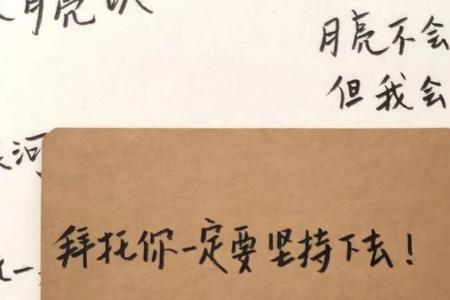 月亮
月亮不会
但我会
河
一
拜托你一定要坚持下去！